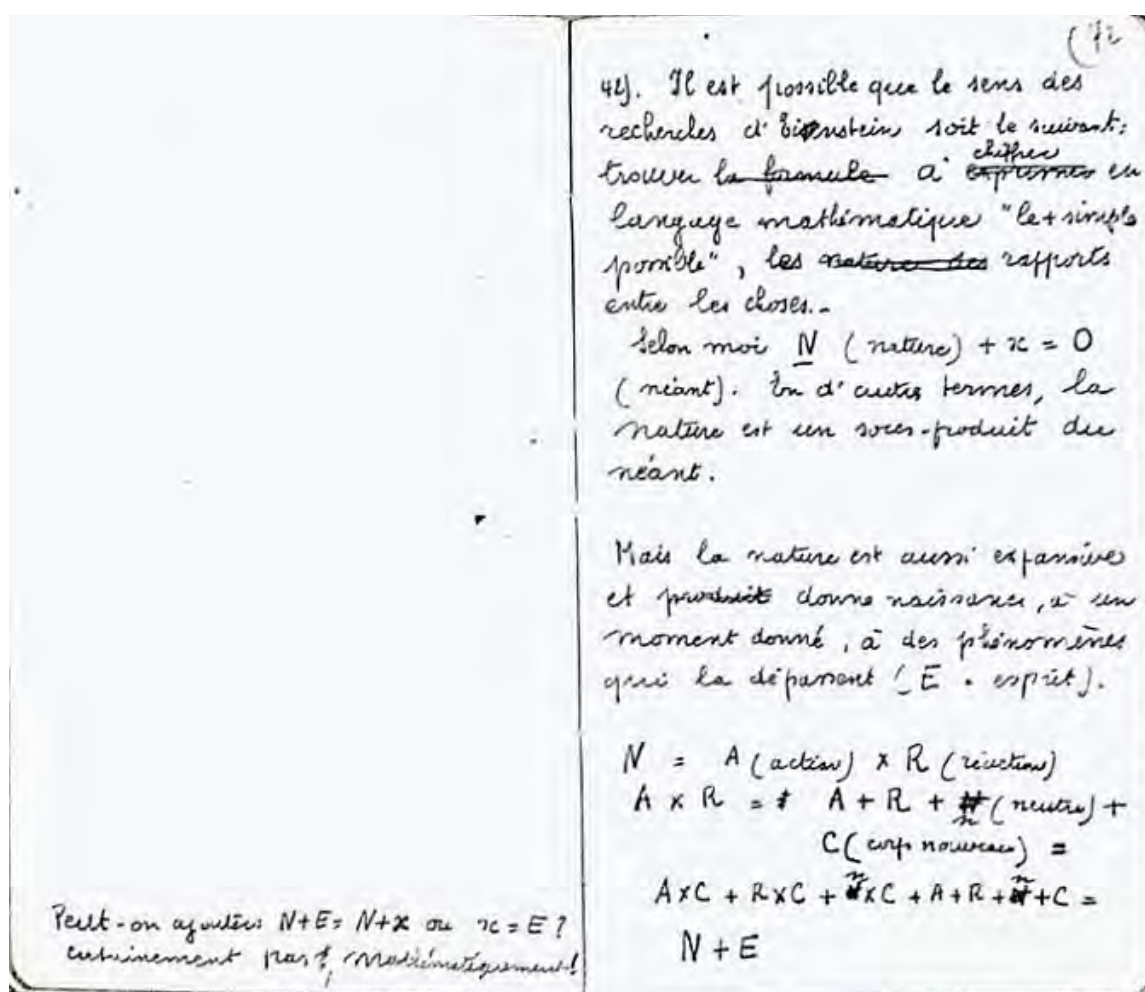 Peut-on ajouter: N+E = N+x ou x = E ?
certainement pas!, mathématiquement!
(42
42). Il est possible que le sens des
recherches d'Einstein soit le suivant:
trouver la formule à chiffrer exprimer en
langage mathématique "le + simple
possible", les nature des rapports
entre les choses..
Selon moi N (nature) + x = 0
(néant). En d'autres termes, la
nature est un sous-produit du
néant.
Mais la nature est aussi expansive
et produit donne naissance, à un
moment donné, à des phénomènes
qui la dépassent (E = esprit).
N = A (action) x R (réaction)
A x R = A + R + n (neutre) +
C (corps nouveau) =
AxC + RxC + nxC + A+R+n+C =
N + E